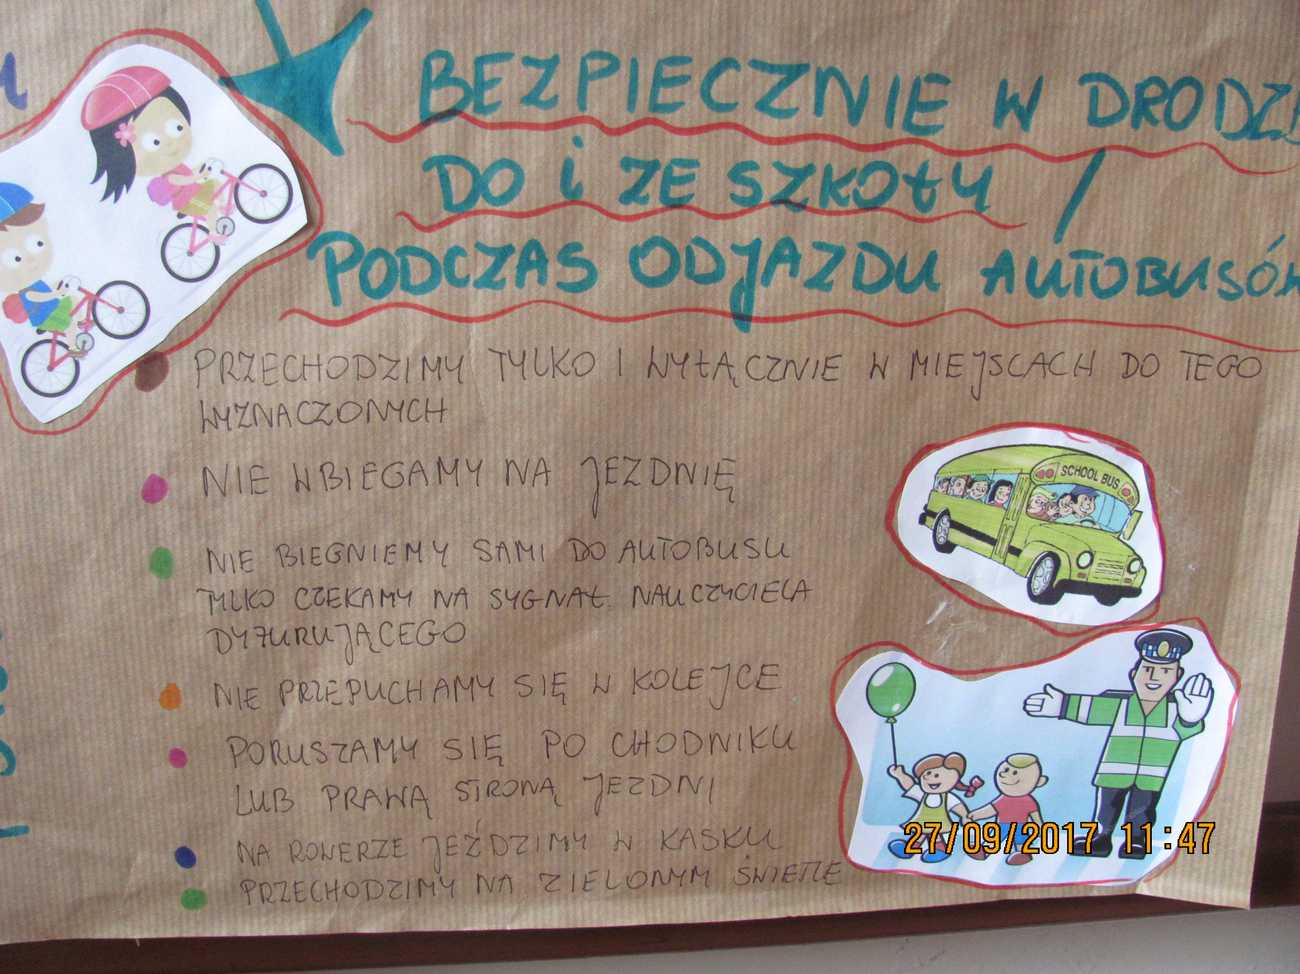 BEZPIECZNIE W DRODZE
DO I ZE SZKOŁY /
PODCZAS ODJAZDU AUTOBUSÓW
PRZECHODZIMY TYLKO I WYŁĄCZNIE W MIEJSCACH DO TEGO
WYZNACZONYCH
NIE WBIEGAMY NA JEZDNIĘ
NIE BIEGNIEMY SAMI DO AUTOBUSU
TYLKO CZEKAMY NA SYGNAŁ NAUCZYCIELA
DYŻURUJĄCEGO
NIE PRZEPUCHAMY SIĘ W KOLEJCE
PORUSZAMY SIĘ PO CHODNIKU
LUB PRAWĄ STRONĄ JEZDNI
NA ROWERZE JEŹDZIMY W KASKU
PRZECHODZIMY NA ZIELONYM ŚWIETLE
SCHOOL BUS
27/09/2017 11:47